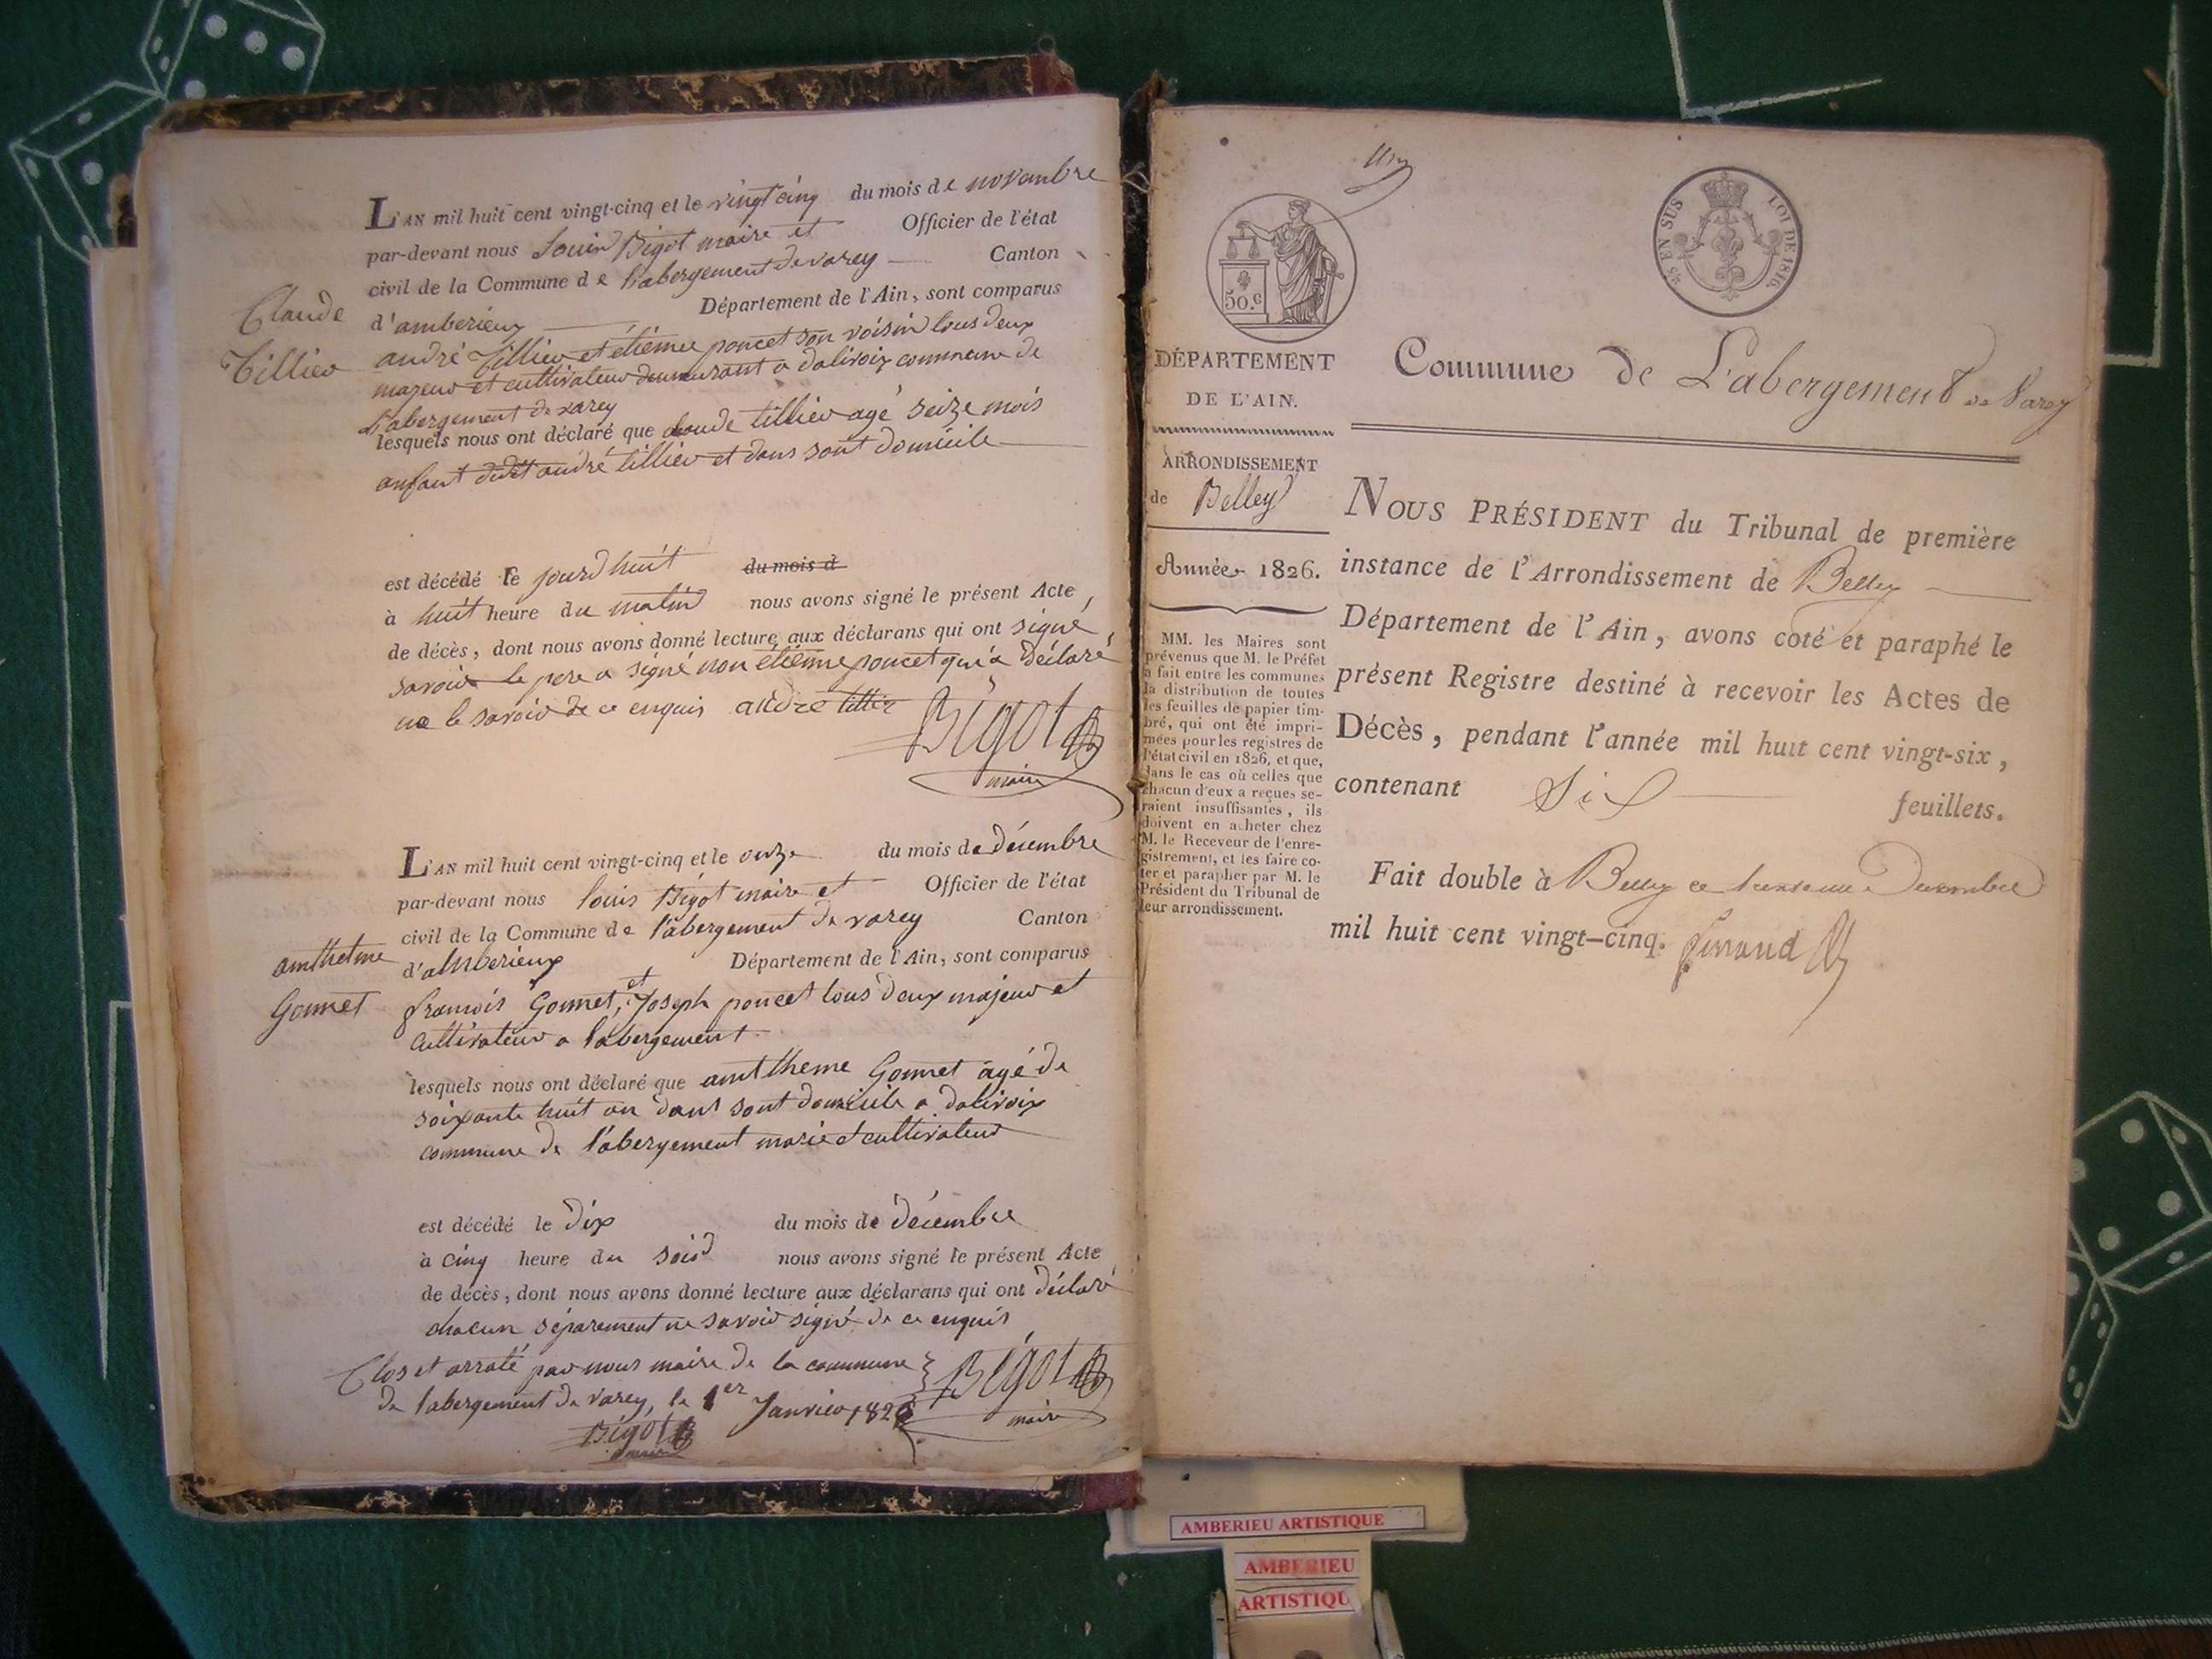 L'AN mil huit cent vingt-cinq et le vingt cinq du mois de novanbre
par-devant nous Louis Bigot maire et Officier de l'état
civil de la Commune de l'abergement de varey Canton
d'amberieux Département de l'Ain, sont comparus
Claude
Tillier
andré Tillier et étienne poncet son voisin tous deux
majeur et cultivateur demeurant a dalivoix commune de
l'abergement de varey
lesquels nous ont déclaré que claude tillier agé seize mois
anfant dudit andré tillier et dans sont domicile
est décédé le jourd huit du mois d
à huit heure du matin nous avons signé le présent Acte
de décès, dont nous avons donné lecture aux déclarans qui ont signé,
savoir le pere a signé non etienne poncet qui a déclaré
ne le savoir de ce enquis andre tillier
Bigot
maire
L'AN mil huit cent vingt-cinq et le onze du mois de décembre
par-devant nous louis Bigot maire et Officier de l'état
civil de la Commune de l'abergement de varey Canton
d'amberieux Département de l'Ain, sont comparus
amthelme
Gonnet
françois Gonnet, et Joseph poncet tous deux majeur et
cultivateur a l'abergement
lesquels nous ont déclaré que amttheme Gonnet agé de
soixante huit an dans sont domicile a dalivoix
commune de l'abergement marié et cultivateur
est décédé le dix du mois de décembre
à cinq heure du soir nous avons signé le présent Acte
de décès, dont nous avons donné lecture aux déclarans qui ont déclaré
chacun séparement ne savoir signé de ce enquis
Clos et arraté par nous maire de la commune
de l'abergement de varey, le 1er Janvier 1826
Bigot
maire
Bigot
maire
50.c
EN SUS LOI DE 1816.
DÉPARTEMENT
DE L'AIN.
Commune de L'abergement de Varey
ARRONDISSEMENT
de Belley
Année 1826.
MM. les Maires sont
prévenus que M. le Préfet
a fait entre les communes
la distribution de toutes
les feuilles de papier tim-
bré, qui ont été impri-
mées pour les registres de
l'état civil en 1826, et que,
dans le cas où celles que
chacun d'eux a reçues se-
raient insuffisantes, ils
doivent en acheter chez
M. le Receveur de l'enre-
gistrement, et les faire co-
ter et parapher par M. le
Président du Tribunal de
leur arrondissement.
NOUS PRÉSIDENT du Tribunal de première
instance de l'Arrondissement de Belley
Département de l'Ain, avons coté et paraphé le
présent Registre destiné à recevoir les Actes de
Décès, pendant l'année mil huit cent vingt-six,
contenant Six feuillets.
Fait double à Belley ce Decembre
mil huit cent vingt-cinq.
AMBERIEU ARTISTIQUE
AMBERIEU
ARTISTIQU